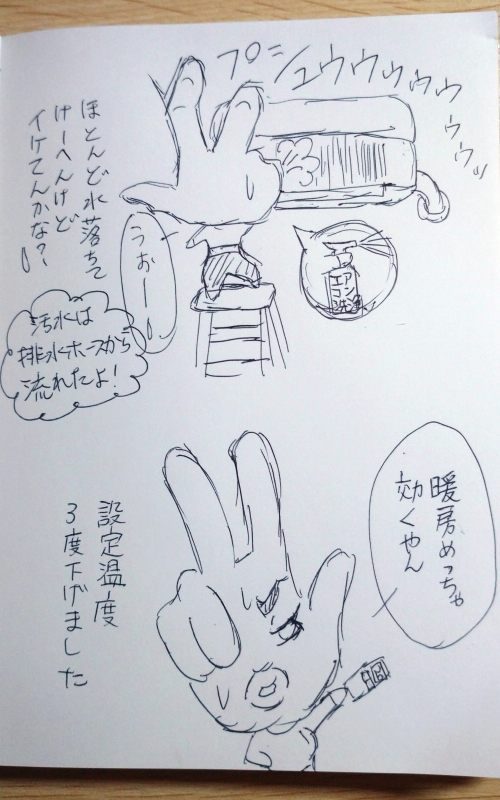 プシュウウゥゥゥゥゥッ
ほとんど水落ちて
けーへんけど
イケてんかな?
うぉー
エアコン
洗浄
汚水は
排水ホースから
流れたよ!
暖房めっちゃ
効くやん
設定温度
3度下げました